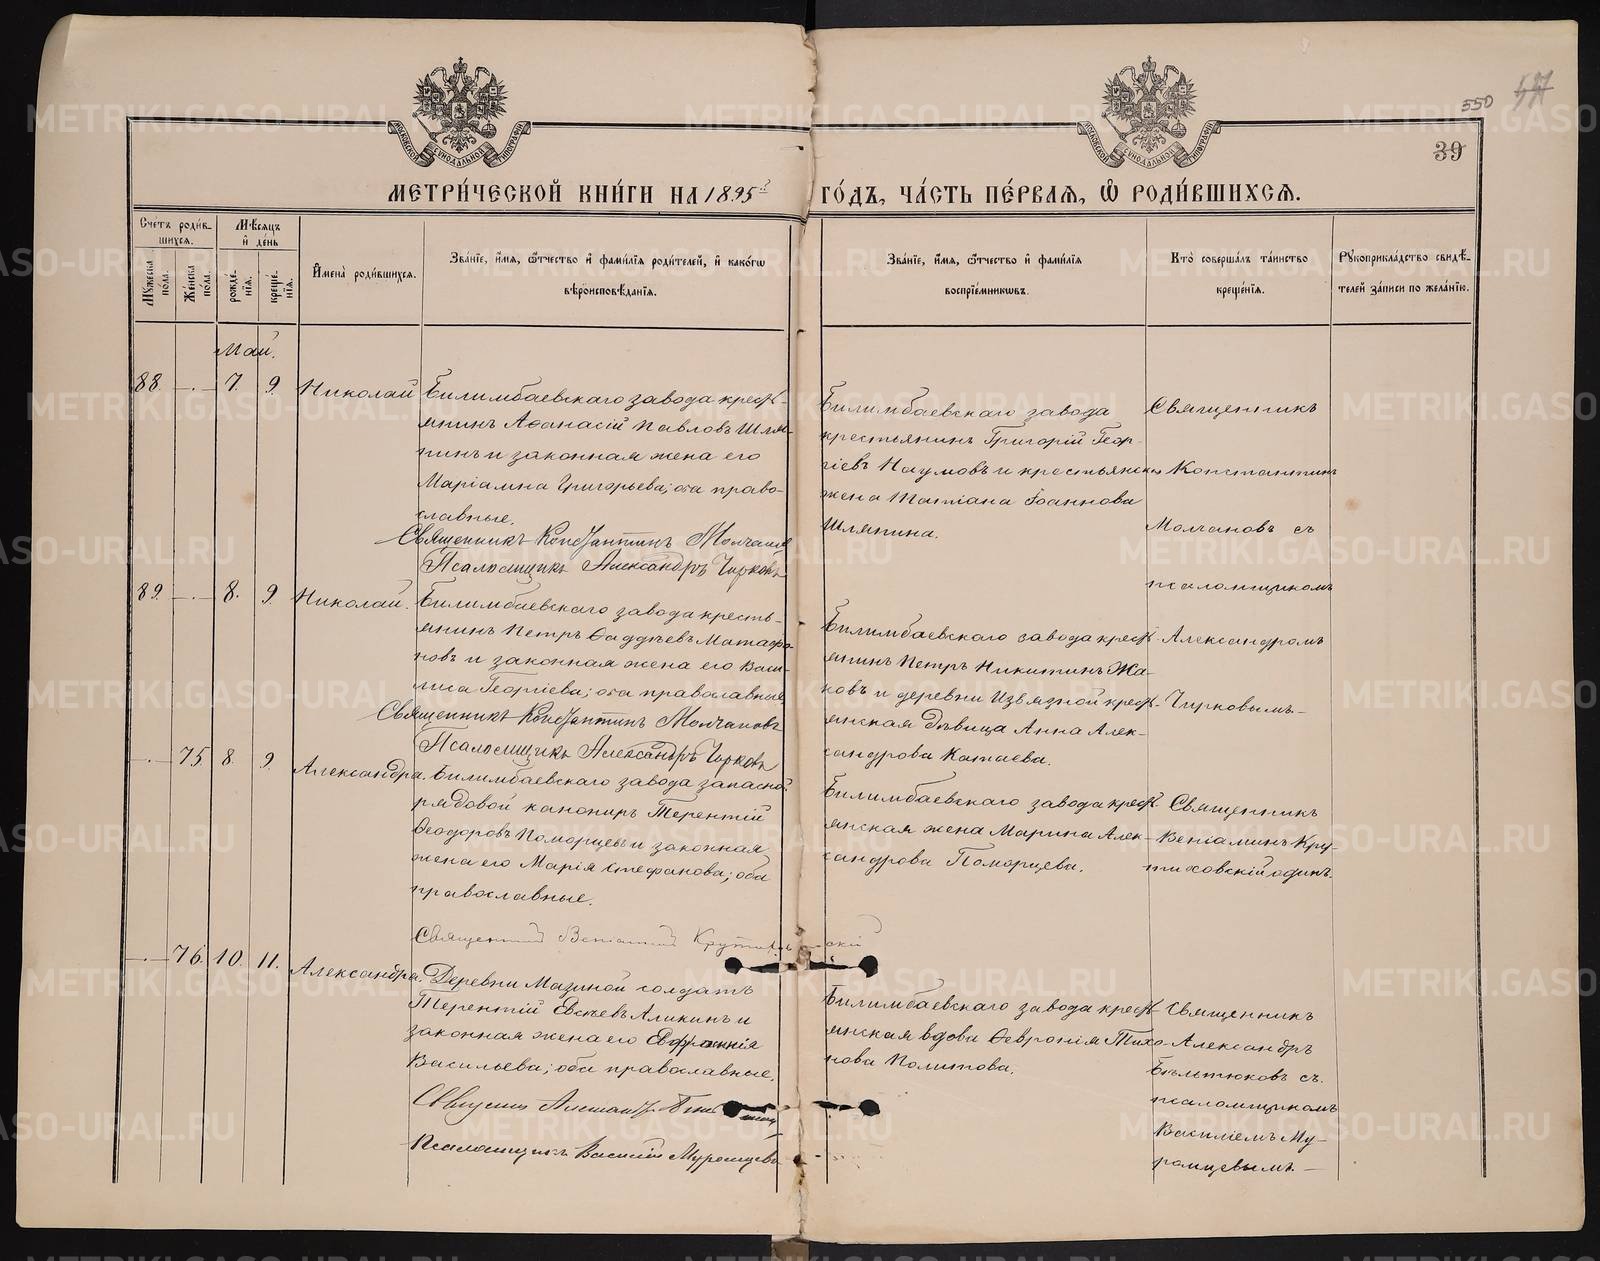 550
39
МОСКОВСКОЙ СѴНОДАЛЬНОЙ ТИПОГРАФІИ
МОСКОВСКОЙ СѴНОДАЛЬНОЙ ТИПОГРАФІИ
МЕТРИ́ЧЕСКОЙ КНИ́ГИ НА 1895й ГО́ДЪ, ЧА́СТЬ ПЕ́РВАЯ, Ѿ РОДИ́ВШИХСЯ.
Сче́тъ роди́в-
шихся.
Мѣ́сяцъ
и҆ де́нь
Мꙋ́жеска
по́ла.
Же́нска
по́ла.
рожде́-
нїѧ.
креще́-
нїѧ.
И҆мена̀ роди́вшихся.
Зва́нїе, и҆́мя, ѻ҆́тчество и҆ фами́лїя роди́телей, и҆ како́гѡ
вѣроисповѣ́данїя.
Зва́нїе, и҆́мя, ѻ҆́тчество и҆ фами́лїя
воспрїе́мникѡвъ.
Кто̀ соверша́лъ та́инство
креще́нїя.
Рꙋкоприкла́дство свидѣ́-
телей за́писи по жела́нїю.
Май.
88. — 7. 9. Николай
Билимбаевскаго завода крест-
янинъ Афанасій Павловъ Шля-
пинъ и законная жена его
Маріамна Григорьева; оба право-
славные.
Священникъ Константинъ Молчановъ
Псаломщикъ Александръ Чирковъ
Билимбаевскаго завода
крестьянинъ Григорій Геор-
гіевъ Наумовъ и крестьянска
жена Татіана Іоаннова
Шляпина.
Священникъ
Константинъ
Молчановъ съ
псаломщикомъ
Александромъ
Чирковымъ. —
89. — 8. 9. Николай.
Билимбаевскаго завода кресть-
янинъ Петръ Фаддѣевъ Матафо-
новъ и законная жена его Васи-
лиса Георгіева; оба православные
Священникъ Константинъ Молчановъ
Псаломщикъ Александръ Чирковъ
Билимбаевскаго завода крест-
янинъ Петръ Никитинъ Жа-
ковъ и деревни Извязной крест-
янская дѣвица Анна Алек-
сандрова Катаева.
— 75. 8. 9. Александра.
Билимбаевскаго завода запасной
рядовой канониръ Терентій
Ѳеодоровъ Поморцевъ и законная
жена его Марія Стефанова; оба
православные.
Священникъ Веніаминъ Крутиховскій
Билимбаевскаго завода крест-
янская жена Марина Алек-
сандрова Поморцева.
Священникъ
Веніаминъ Кру-
тиховскій одинъ.
— 76. 10. 11. Александра.
Деревни Мазиной солдатъ
Терентій Евсѣевъ Аликинъ и
законная жена его Евфросинія
Васильева; оба православные.
Псаломщикъ Василій Муромцевъ
Билимбаевскаго завода крест-
янская вдова Ѳевронія Тихо-
нова Политова.
Священникъ
Александръ
Бѣльтюковъ съ
псаломщикомъ
Василіемъ Му-
ромцевымъ. —
METRIKI.GASO-URAL.RU